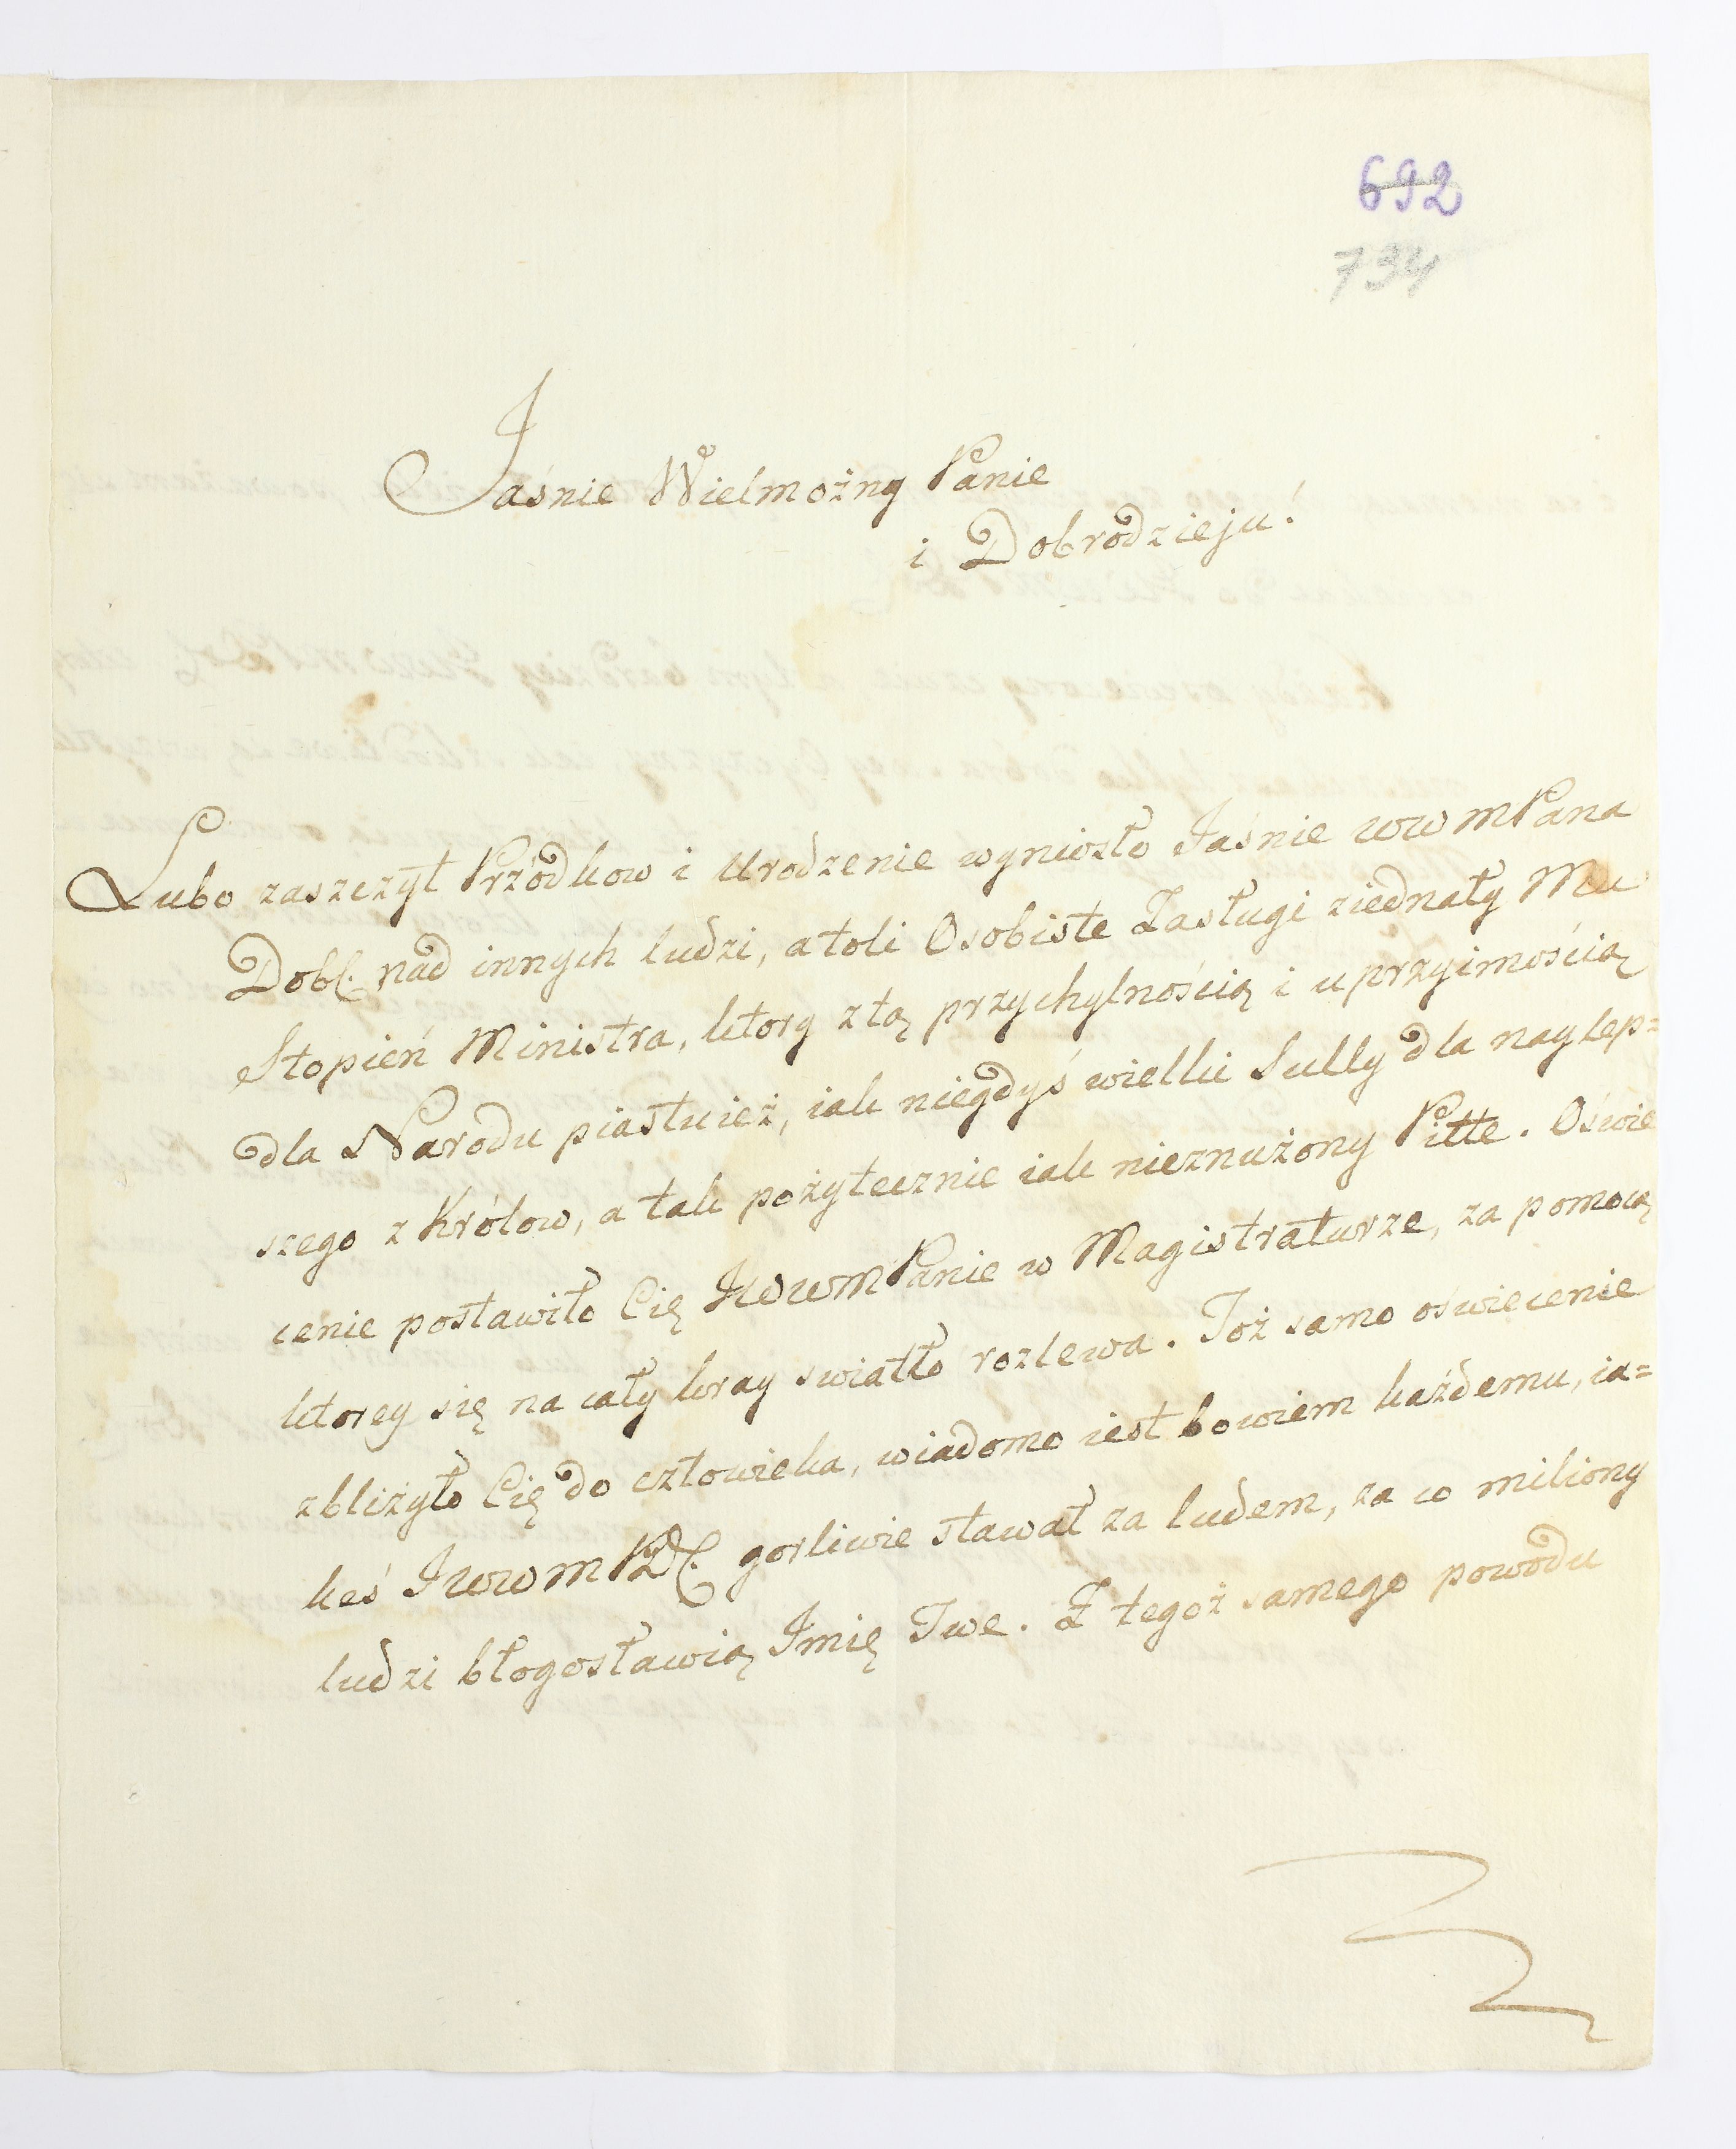 692
734
Jaśnie Wielmożny Panie
i Dobrodzieju!
Lubo zaszczyt Przódkow i Urodzenie wyniosło Jaśnie WW mPana
Dobl. nad innych ludzi, atoli Osobiste Zasługi ziednały Mu
Stopień Ministra, ktory z tą przychylnością i uprzyimością
dla Narodu piastuież, iak niegdyś wielki Sully dla naylep=
szego z Królow, a tak pożytecznie iak nieznużony Pitte. Oświe
cenie postawiło Cię JWWmPanie w Magistraturze, za pomocą
ktorey się na cały kray swiatło rozlewa. Toż samo oświecenie
zbliżyło Cię do człowieka, wiadomo iest bowiem każdemu, ia=
keś JWWmPD. gorliwie stawał za ludem, za co miliony
ludzi błogosławią Imię Twe. Z tegoż samego powodu